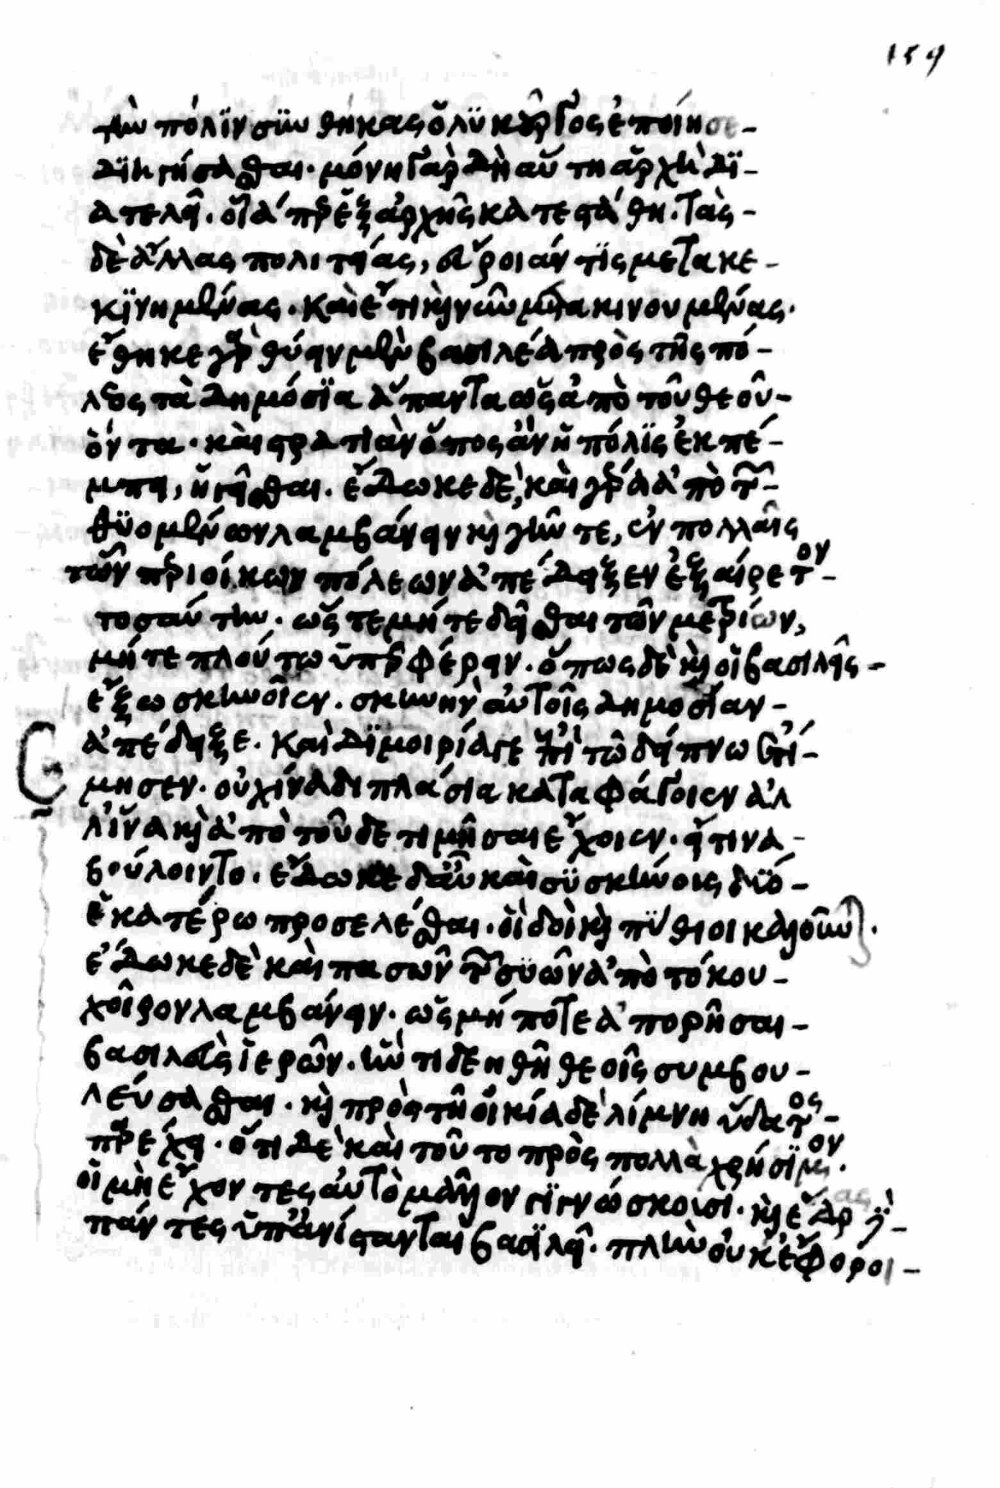 159
τὴν πόλιν συνθήκας ὁ λυκοῦργος ἐποίησε
διηγήσασθαι. μόνη γὰρ δὴ αὕτη ἀρχὴ δι
ατελεῖ. οἵα περ ἐξ ἀρχῆς κατεστάθη. τὰς
δὲ ἄλλας πολιτείας, εὕροι ἄν τις μετακε
κινημένας. καὶ ἔτι καὶ νῦν μετακινουμένας.
ἔθηκε γὰρ θύειν μὲν βασιλέα πρὸς τῆς πό
λεως τὰ δημόσια ἅπαντα ὡς ἀπὸ τοῦ θεοῦ
ὄντα. καὶ στρατιὰν ὅποσ ἂν ἡ πόλις ἐκπέ
μπῃ, ἡγεῖσθαι. ἔδωκε δὲ, καὶ γέρα ἀπὸ τῶν
θυομένων λαμβάνειν καὶ γῆν τε, ἐν πολλαῖς
τῶν περιοίκων πόλεων ἀπέδειξεν ἐξαίρετον
τοσαύτην. ὥστε μήτε δεῖσθαι τῶν μετρίων,
μήτε πλούτω ὑπερφέρειν. ὅπως δὲ καὶ οἱ βασιλεῖς
ἔξω σκηνοῖεν. σκηνὴν αὐτοῖς δημοσίαν
ἀπέδειξε. καὶ διμοιρία γε ἐπὶ τῶ δείπνω ἐτί
μησεν. οὐχ ἵνα διπλάσια καταφάγοιεν ἀλ
λ' ἵνα καὶ ἀπὸ τοῦδε τιμῆσαι ἔχοιεν. εἴ τινα
βούλοιντο. ἔδωκε δ' αὖ καὶ συσκήνους δύο
ἑκατέρω προσελέσθαι. οἳ δὴ καὶ πύθιοι καλοῦνται.
ἔδωκε δὲ καὶ πασῶν τῶν συῶν ἀπὸ τόκου
χοῖρον λαμβάνειν. ὡς μή ποτε ἀπορῆσαι
βασιλεὺς ἱερῶν. ἤν τι δεηθῇ θεοῖς συμβου
λεύσασθαι. καὶ πρὸς τῇ οἰκία δὲ λίμνη ὕδατος
παρέχει. ὅτι δὲ καὶ τοῦτο πρὸς πολλὰ χρήσιμον.
οἱ μὴ ἔχοντες αὐτὸ μᾶλλον γιγνώσκουσι. καὶ ἕδρας δὲ
πάντες ὑπανίστανται βασιλεῖ. πλὴν οὐκ ἔφοροι